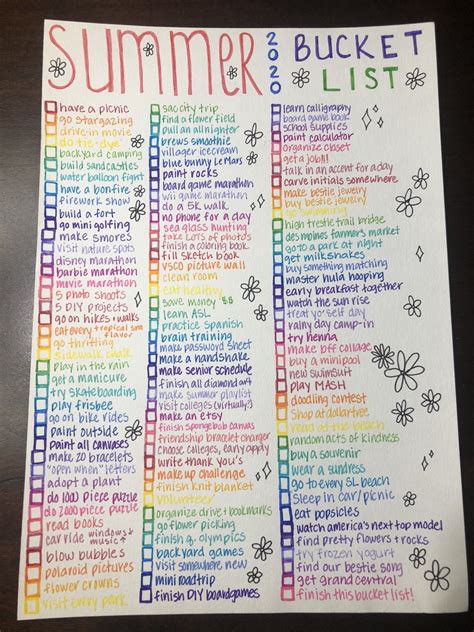 SUMMER 2020 BUCKET LIST
have a picnic
go stargazing
drive-in movie
do tie-dye
backyard camping
build sandcastles
water balloon fight
have a bonfire
firework show
build a fort
go mini golfing
make smores
visit nature spots
disney marathon
barbie marathon
movie marathon
5 photo shoots
5 DIY projects
go on hikes + walks
eat every tropical smo flavor
go thrifting
sidewalk chalk
play in the rain
get a manicure
try skateboarding
play frisbee
go on bike rides
paint outside
paint all canvases
make 20 bracelets
"open when" letters
adopt a plant
do 1000 piece puzzle
do 2000 piece puzzle
read books
car ride windows↓ music↑
blow bubbles
polaroid pictures
flower crowns
visit every park
sac city trip
find a flower field
pull an all nighter
brews smoothie
villager icecream
blue bunny LeMars
paint rocks
board game marathon
wii game marathon
do a 5K walk
no phone for a day
sea glass hunting
take LOTS of photos
finish a coloring book
fill sketch book
VSCO picture wall
clean room
eat healthy
save money $$
learn ASL
practice Spanish
brain training
make password sheet
make a handshake
make senior schedule
finish all diamond art
make summer playlist
visit colleges (virtually?)
make an etsy
finish spongebob canvas
friendship bracelet changer
choose colleges, early apply
write thank you's
make up challenge
finish knit blanket
volunteer
organize drive + bookmarks
go flower picking
finish g. olympics
backyard games
visit somewhere new
mini roadtrip
finish DIY boardgames
learn calligraphy
board game book
school supplies
paint calculator
organize closet
get a job!!
talk in an accent for a day
carve initials somewhere
make bestie jewelry
buy bestie jewelry
go swimming
high trestle trail bridge
des moines farmers market
go to a park at night
get milkshakes
buy something matching
master hula hooping
early breakfast together
watch the sun rise
treat yo' self day
rainy day camp-in
try henna
make BFF collage
buy a minipool
new swimsuit
play MASH
doodling contest
shop at dollartree
read at the beach
random acts of kindness
buy a souvenir
wear a sundress
go to every SL beach
sleep in car/picnic
eat popsicles
watch america's next top model
find pretty flowers + rocks
try frozen yogurt
find our bestie song
get grand central
finish this bucket list!